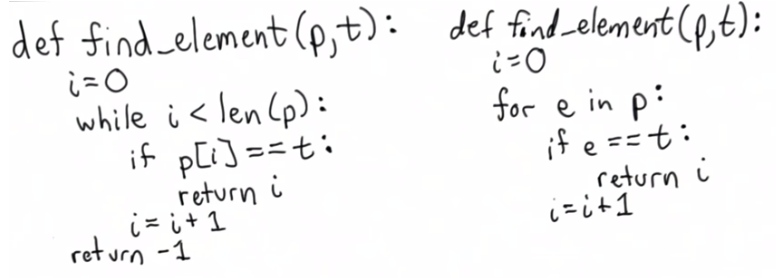 def find_element(p,t):
    i=0
    while i < len(p):
        if p[i]==t:
            return i
        i=i+1
    return -1
def find_element(p,t):
    i=0
    for e in p:
        if e==t:
            return i
        i=i+1